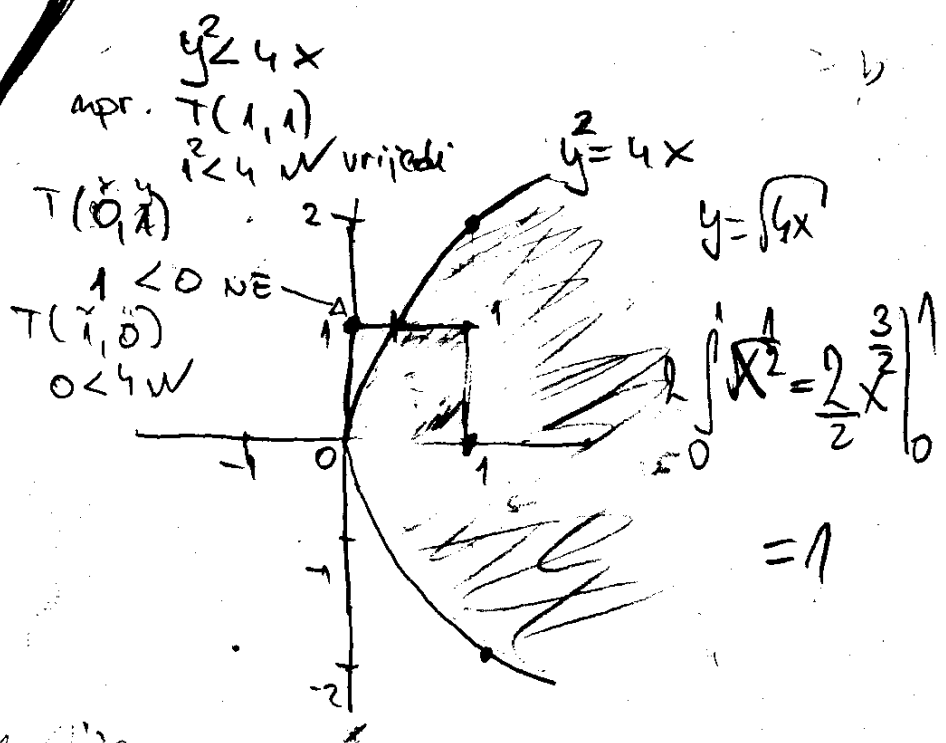 y² < 4x
npr. T(1,1)
1² < 4 W vrijedi
T(0,1)
1 < 0 NE
T(1,0)
0 < 4 W
y² = 4x
y = √4x
2 ∫₀¹ √x^{1/2} = 2/2 x^{3/2} |₀¹
= 1
2
1
1
-1
0
1
-1
-2
b)